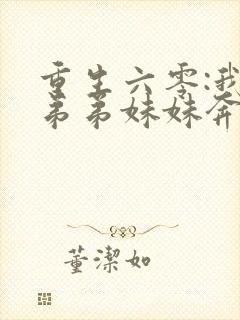 重生六零:我
弟弟妹妹奔
董潔如